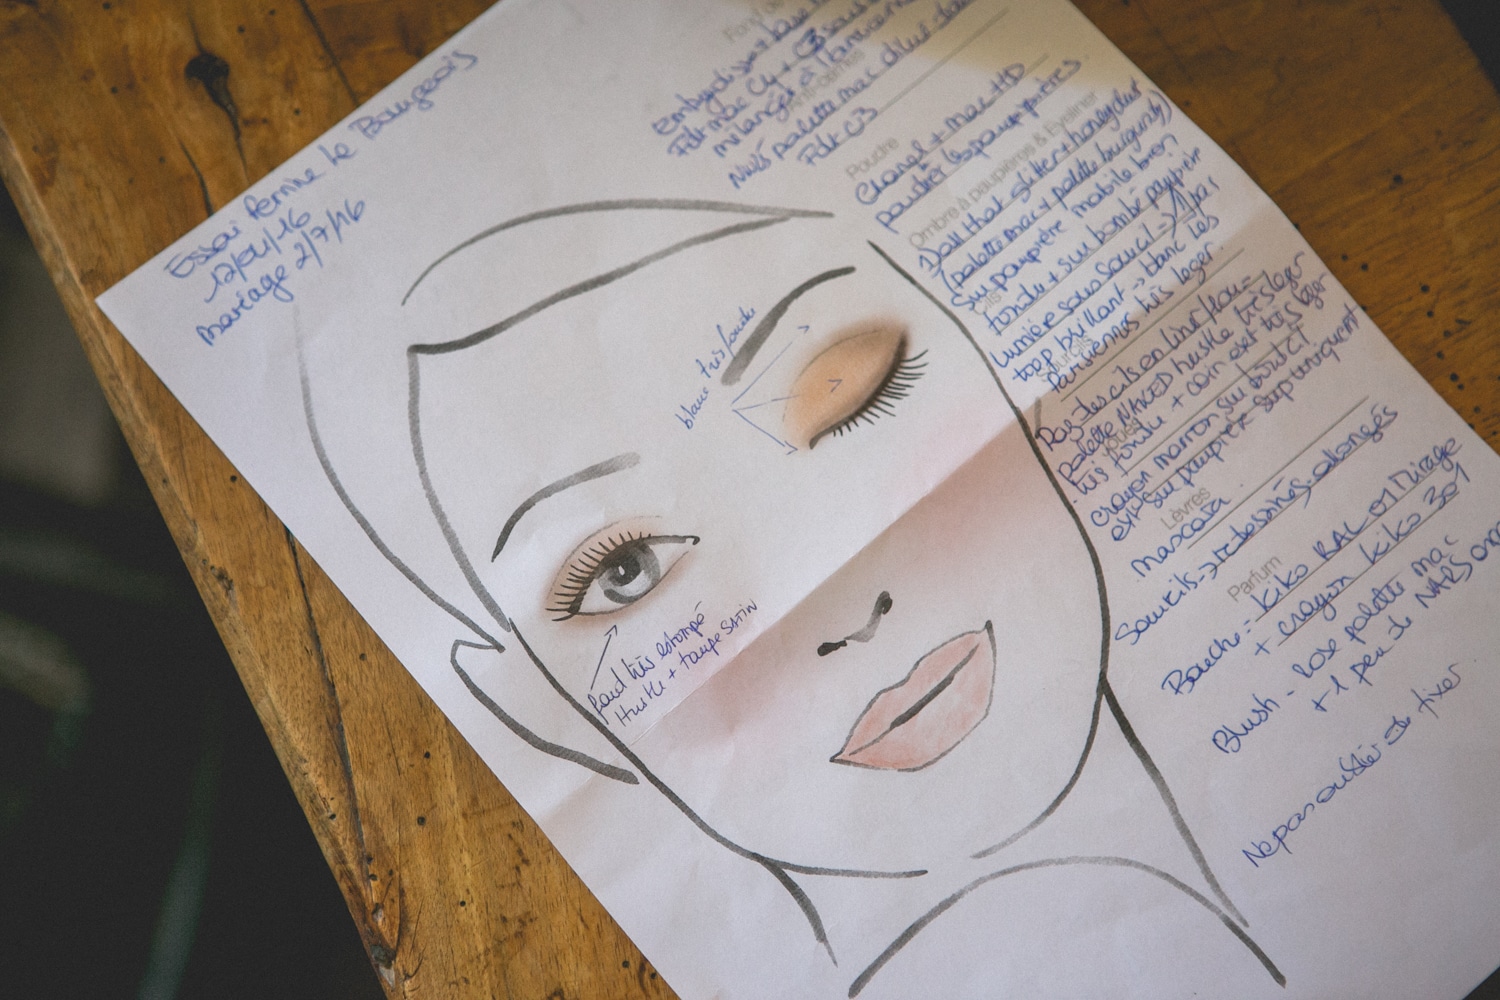 Essai femme le Bourgeois
12/04/16
mariage 2/7/16
Fond de
Embryolisse + base
Fdt mac C4 + C3 sous
mélangés à
Anti-cernes
NW25 palette mac diluer dans
Fdt C3
Poudre
Chanel + mac HD
poudrer les paupières
Ombre à paupières & Eyeliner
Dall that glitter + honeylust
(palette mac + palette burgundy)
sur paupière mobile bien
fondu + sur bombé paupière
Cils
lumière sous sourcil => 1 par
trop brillant -> blanc les
parisiennes très léger.
Sourcils
Raz des cils en liner flou =
palette NAKED hustle très léger
Joues
très fondu + coin ext très léger
crayon marron sur bord cil
ext sur paupière sup uniquement
mascara.
Lèvres
Sourcils -> redessinés, allongés
Parfum
Bouche = Kiko RAL 01 Mirage
+ crayon kiko 301
Blush - rose palette mac
+ 1 peu de NARS
Ne pas oublier de fixer
blanc très fondu
fard très estompé
Hustle + taupe satin